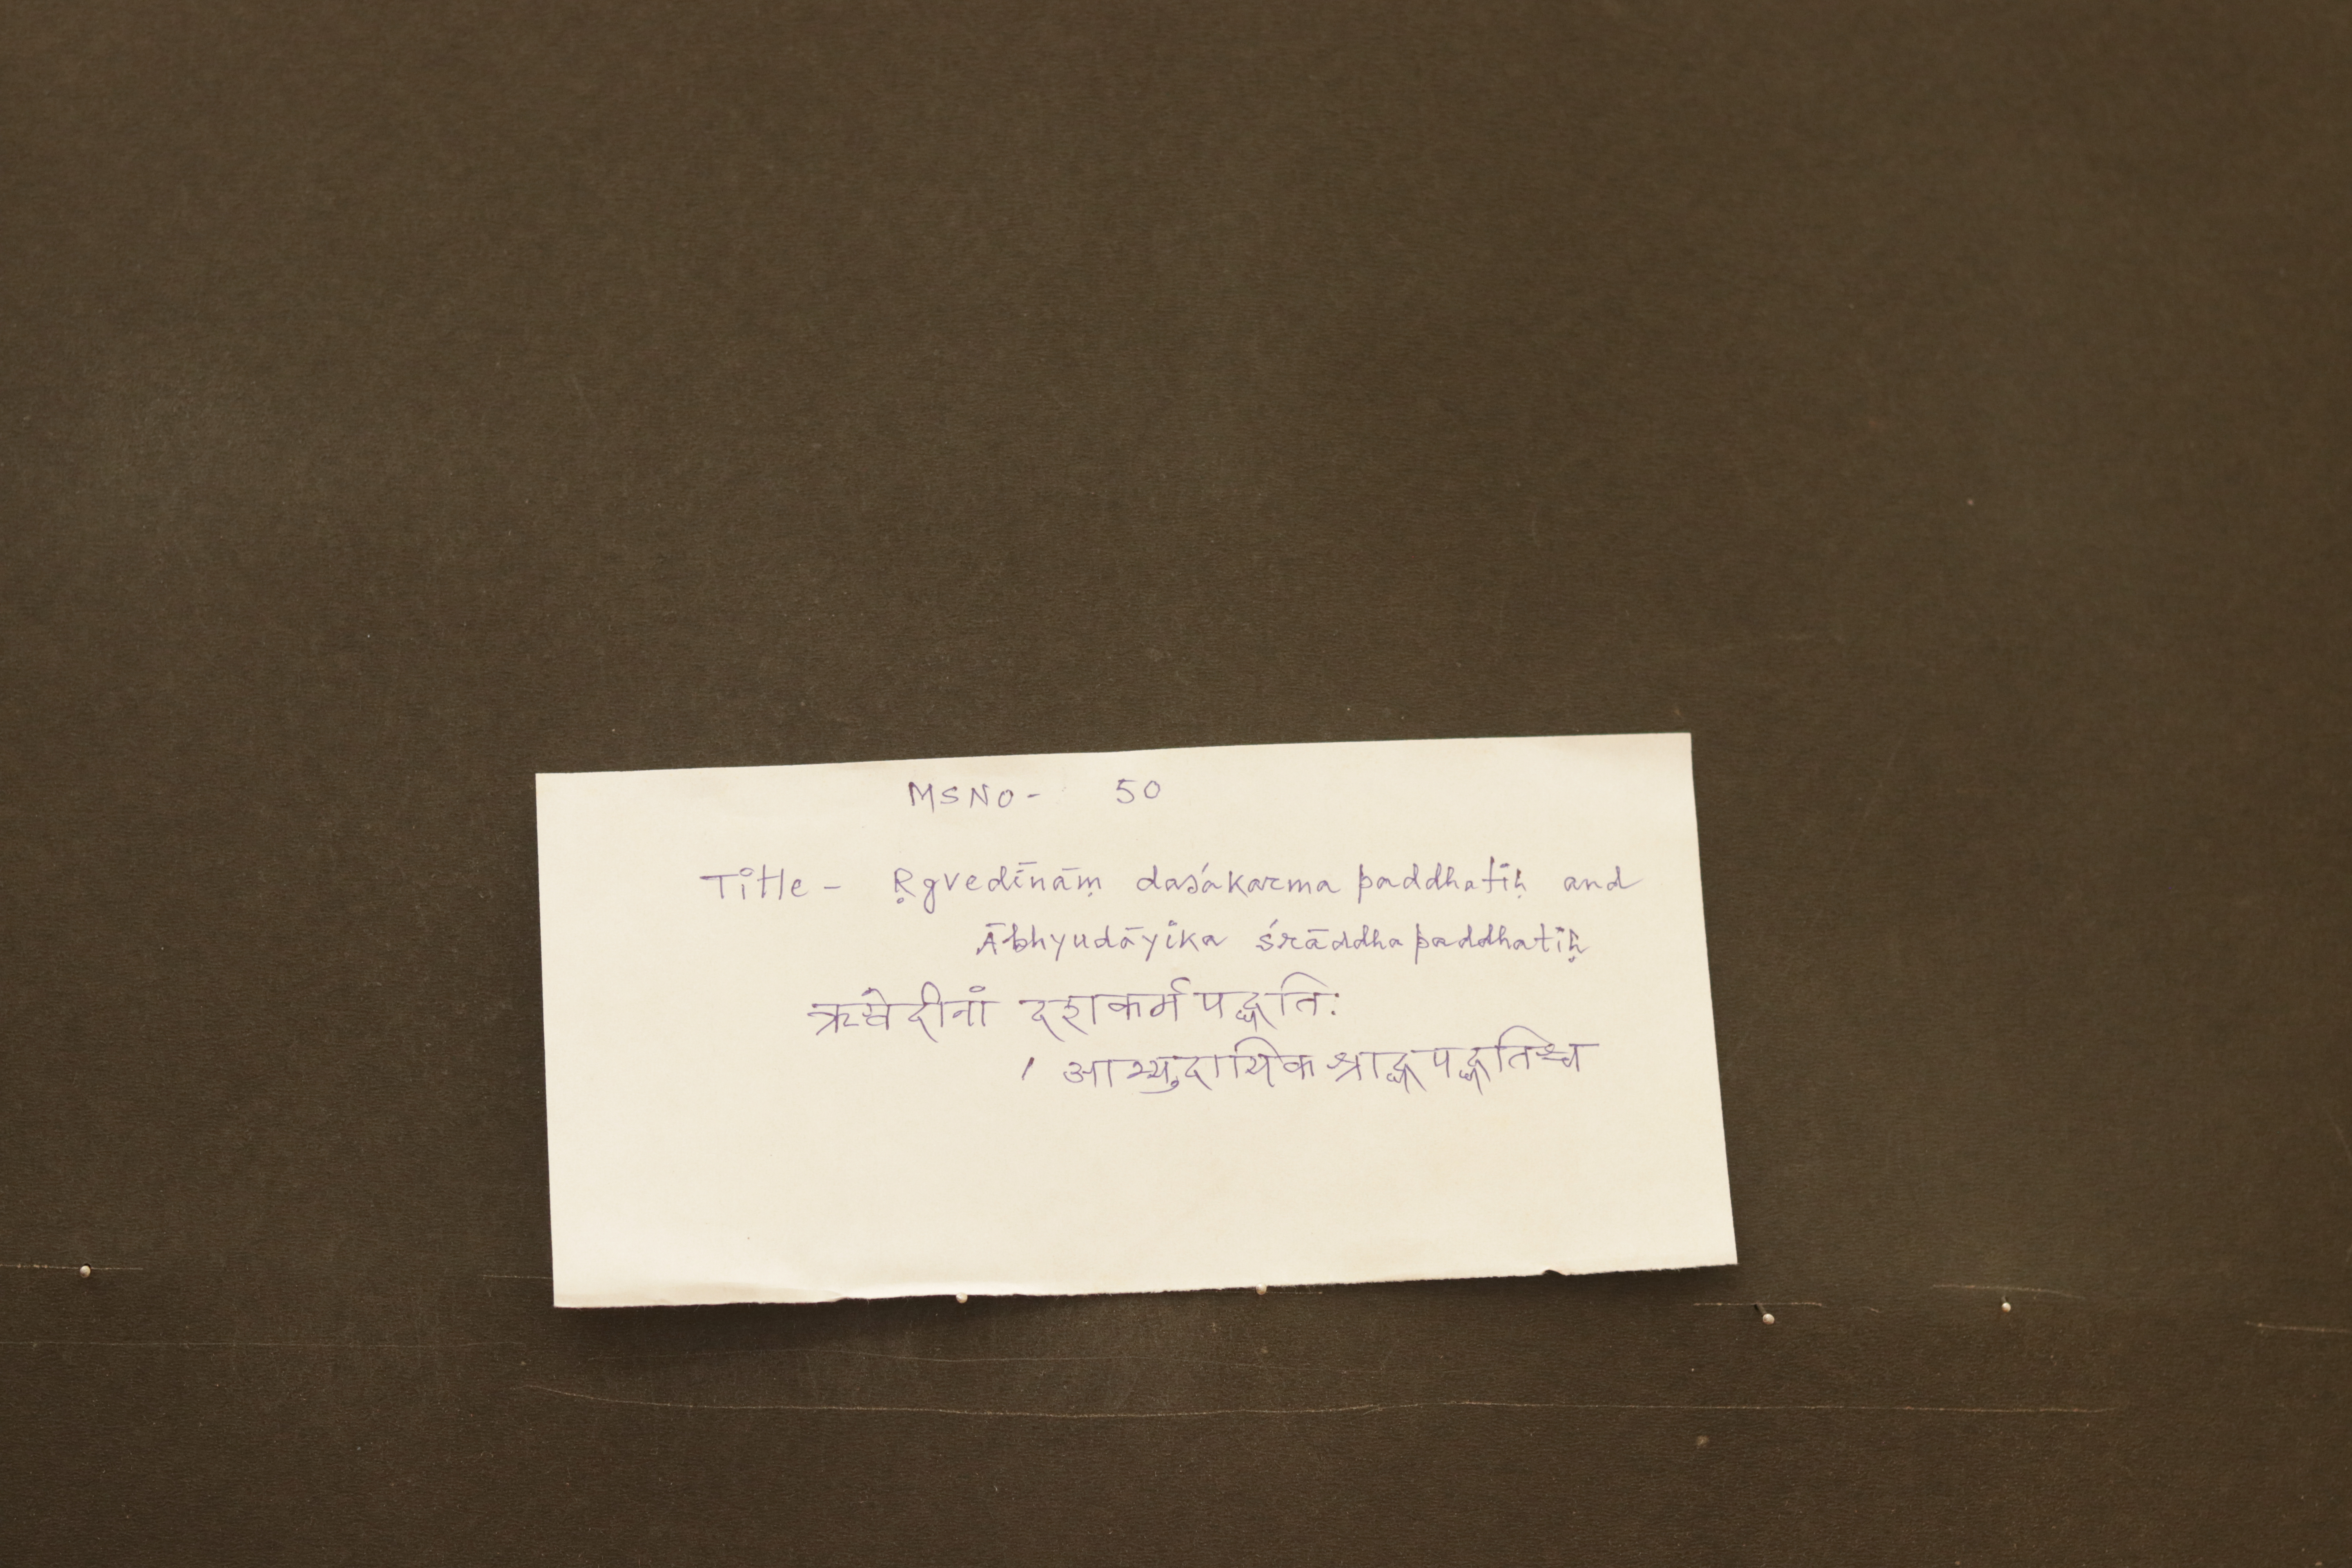 MS NO - 50
Title - Ṛgvedīnāṃ daśakarma paddhatiḥ and
Ābhyudāyika śrāddha paddhatiḥ
ऋग्वेदीनां दशकर्म पद्धति:
। आभ्युदायिक श्राद्ध पद्धतिश्च